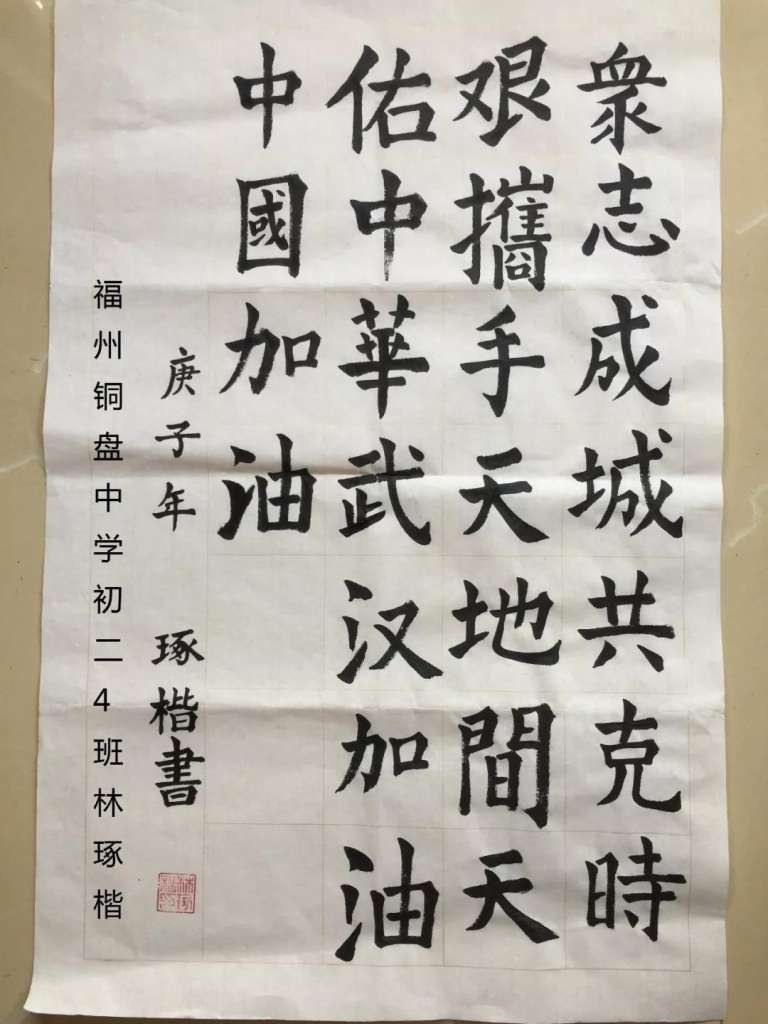 衆志成城共克時
艱攜手天地間天
佑中華武汉加油
中國加油
庚子年 琢楷書
福州铜盘中学初二4班林琢楷